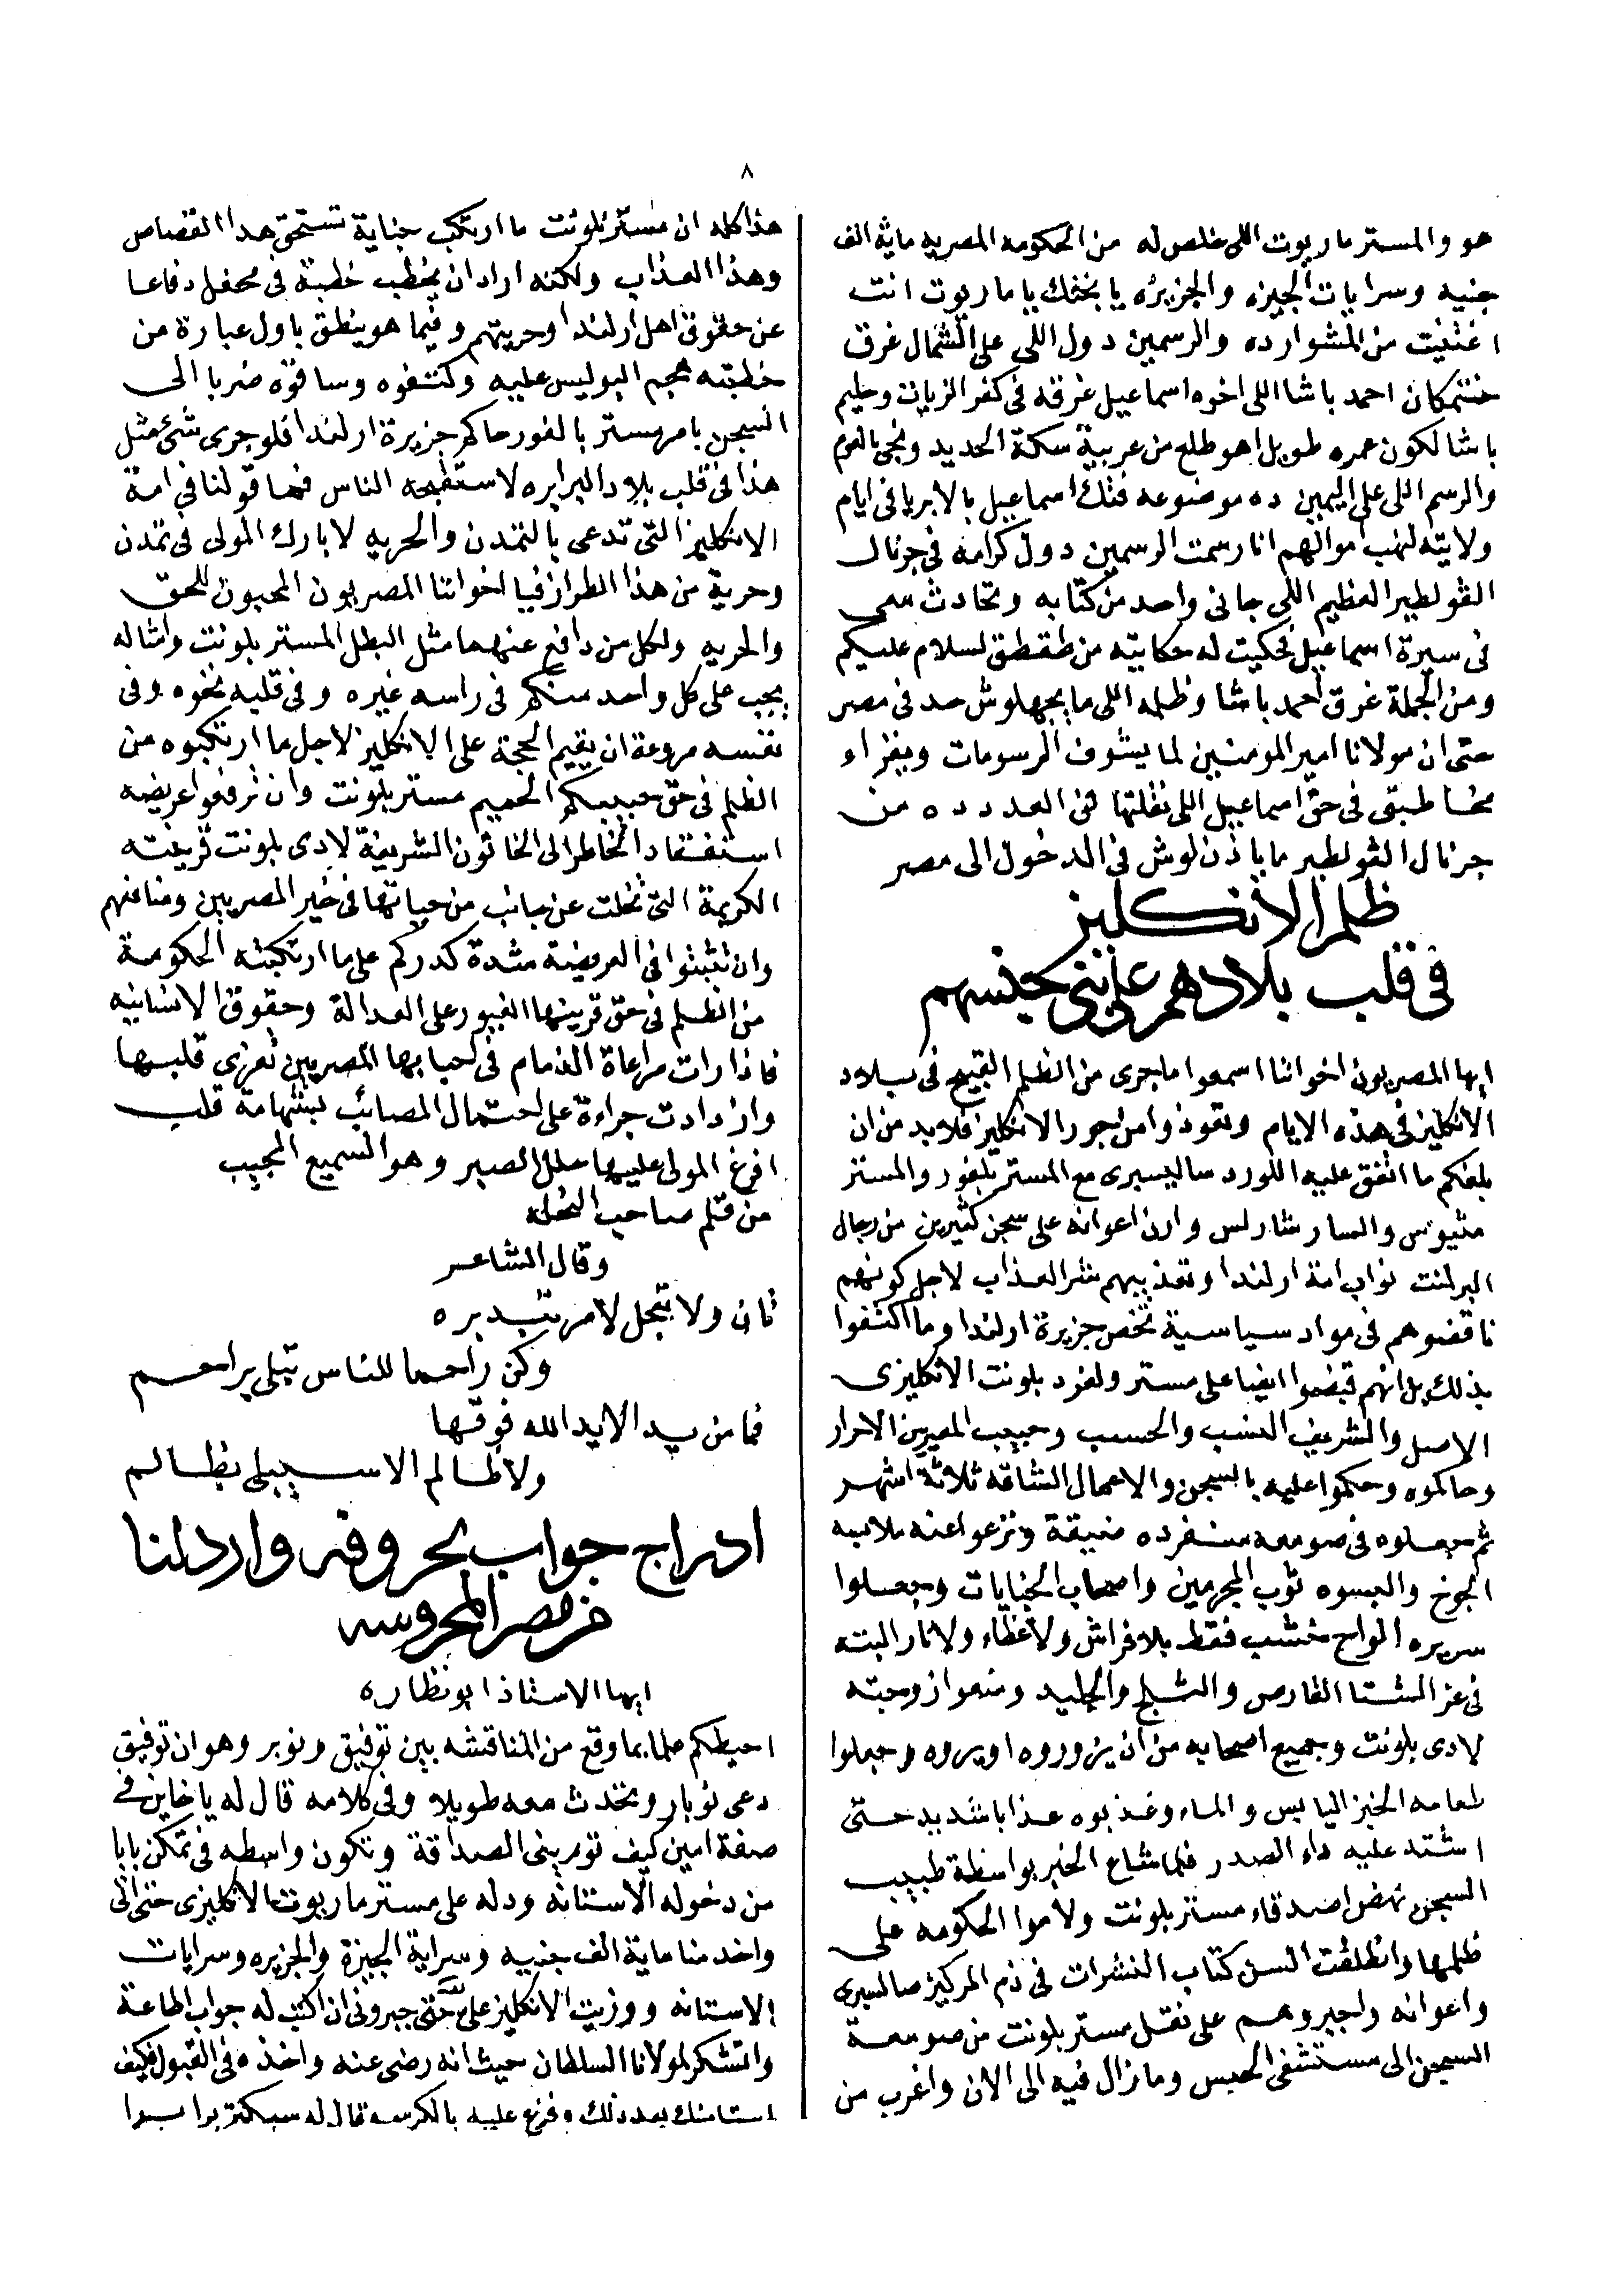 ٨
هو والمستر ماريوت اللي خلص له من الحكومه المصريه ماية الف
جنيه وسرايات الجيزه والجزيره يا بختك يا ماريوت انت
اغتنيت من المشوار ده والرسمين دول اللي على الشمال غرق
خنتمكان احمد باشا اللي اخوه اسماعيل غرقه في كفر الزيات وحليم
باشا لكون عمره طويل اهو طلع من عربية سكة الحديد ونجي بالعوم
والرسم اللي على اليمين ده موضوعه فتك اسماعيل بالابريا في ايام
ولايته لنهب اموالهم انا رسمت الرسمين دول كرامه في جرنال
الڤولطير العظيم اللي جاني واحد من كتابه وتحادث معي
في سيرة اسماعيل فحكيت له حكايته من طقطق لسلام عليكم
ومن الجملة غرق احمد باشا وظلمه اللي ما يجهلوش حد في مصر
حتى ان مولانا امير المومنين لما يشوف الرسومات ويقراء
مخاطبتي في حق اسماعيل اللي نقلتها في العدد ده من
جرنال الڤولطير ما ياذن لوش في الدخول الى مصر
ظلم الانكليز
في قلب بلادهم على بني جنسهم
ايها المصريون اخواننا اسمعوا ما جرى من الظلم القبيح في بلاد
الانكليز في هذه الايام وتعوذوا من جور الانكليز فلابد من ان
بلغكم ما اتفق عليه اللورد سالیسبری مع المستر بلفور والمستر
متيوس والسار شارلس وارن اعوانه على سجن كثيرين من رجال
البرلمنت نواب امة ارلندا وتعذيبهم شر العذاب لاجل كونهم
ناقضوهم في مواد سياسية تخص جزيرة ارلندا وما اكتفوا
بذلك بل انهم قبضوا ايضا على مستر ولفرد بلونت الانكليزي
الاصل والشريف النسب والحسب وحبيب المصريين الاحرار
وحاكموه وحكموا عليه بالسجن والاعمال الشاقه ثلاثة اشهر
ثم جعلوه في صومعه منفرده ضيقة ونزعوا عنه ملابسه
الجوخ والبسوه ثوب المجرمين واصحاب الجنايات وجعلوا
سريره الواح خشب فقط بلا فراش ولا غطاء ولا نار البته
في عز الشتا القارص والثلج والجليد ومنعوا زوجته
لادي بلونت وجميع اصحابه من ان يزوروه او يروه وجعلوا
طعامه الخبز اليابس والماء وعذبوه عذابا شديد حتى
اشتد عليه داء الصدر فلما شاع الخبر بواسطة طبيب
السجن نهض اصدقاء مستر بلونت ولاموا الحكومه على
ظلمها وانطلقت السن كتاب النشرات في ذم المركيز صالسبري
واعوانه واجبروهم على نقل مستر بلونت من صومعة
السجن الى مستشفى الحبس وما زال فيه الى الان واغرب من
هذا كله ان مستر بلونت ما ارتكب جناية تستحق هذا القصاص
وهذا العذاب ولكنه اراد ان يخطب خطبة في محفل دفاعا
عن حقوق اهل ارلندا وحريتهم وفيما هو ينطق باول عبارة من
خطبته هجم البوليس عليه وكتفوه وساقوه ضربا الى
السجن بامر مستر بالفور حاكم جزيرة ارلندا فلو جرى شئ مثل
هذا في قلب بلاد البرابره لاستقبحه الناس فما قولنا في امة
الانكليز التي تدعى بالتمدن والحريه لا بارك المولى في تمدن
وحرية من هذا الطراز فيا اخواننا المصريون المحبون للحق
والحريه ولكل من دافع عنهما مثل البطل المستر بلونت وامثاله
يجب على كل واحد منكم في راسه غيره وفي قلبه نخوه وفي
نفسه مروءة ان يقيم الحجة على الانكليز لاجل ما ارتكبوه من
الظلم في حق حبيبكم الحميم مستر بلونت وان ترفعوا عريضه
استفتقاد الخاطر الى الخاتون الشريفة لادي بلونت قرينته
الكريمة التي تخلت عن جانب من حياتها في خير المصريين ومنافعهم
وان تثبتوا في العريضة شدة كدركم على ما ارتكبته الحكومة
من الظلم في حق قرينها الغيور على العدالة وحقوق الانسانيه
فاذا رات مراعاة الذمام في احبابها المصريين تعزى قلبها
وازدادت جراءة على احتمال المصائب بشهامة قلب
افرغ المولى عليها حلل الصبر وهو السميع المجيب
من قلم صاحب النحله
وقال الشاعر
تان ولا تعجل لامر تريده
وكن راحما للناس تبلى براحم
فما من يد الا يد الله فوقها
ولا ظالم الا سيبلى بظالم
ادراج جواب بحروفه وارد لنا
من مصر المحروسه
ايها الاستاذ ابو نظاره
احيطكم علما بما وقع من المناقشه بين توفيق ونوبر وهو ان توفيق
دعى نوبار وتحدث معه طويلا وفي كلامه قال له يا خاين في
صفة امين كيف توريني الصداقة وتكون واسطه في تمكن بابا
من دخوله الاستانه ودله على مستر ماريوت الانكليزي حتى اتى
واخد منا ماية الف جنيه وسراية الجيزة والجزيره وسرايات
الاستانه ووزيت الانكليز علي حتى جبروني ان اكتب له جواب اطاعة
واتشكر لمولانا السلطان حيث انه رضى عنه واخذه في القبول فكيف
استامنك بعد ذلك وفزع عليه بالكرسه قال له سيكتر برا برا